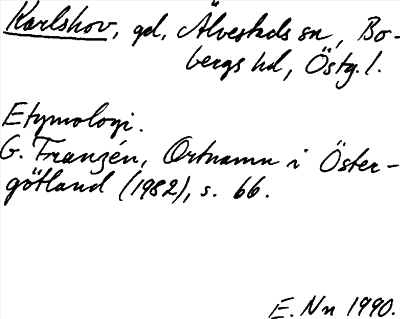 Karlshov, gd, Älvestads sn, Bo-
bergs hd, Östg. l.
Etymologi.
G. Franzén, Ortnamn i Öster-
götland (1982), s. 66.
E. Nn 1990.